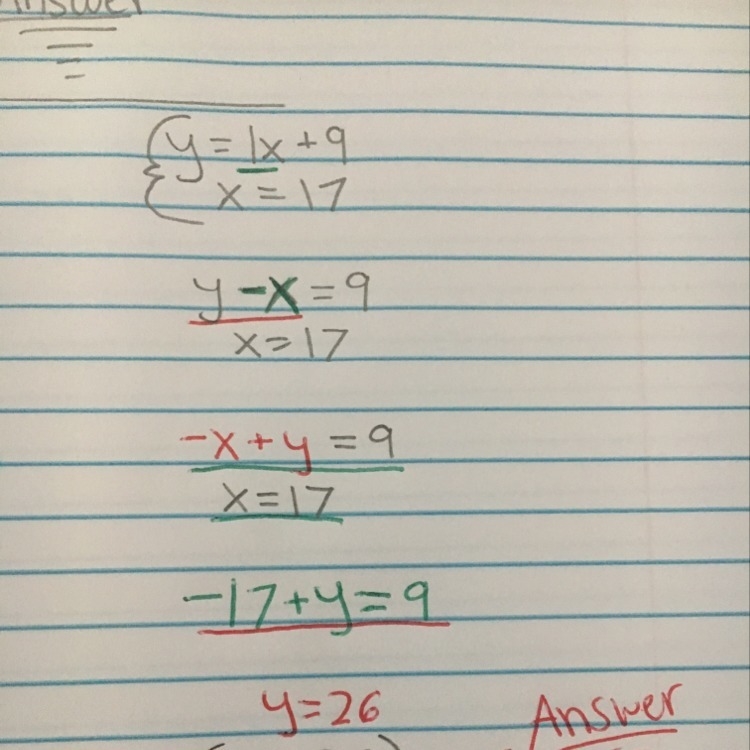 Answer
y = 1x + 9
x = 17
y - x = 9
x = 17
-x + y = 9
x = 17
-17 + y = 9
y = 26
Answer